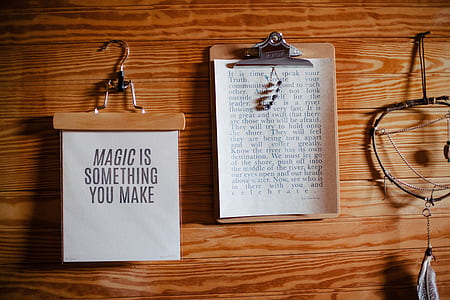 MAGIC IS
SOMETHING
YOU MAKE
It is time speak your
Truth. your
community. good to each
other. not look
outside for the
leader. is a river
very fast. It is
so great and swift that there
are those who will be afraid.
They will try to hold onto
the shore. They will feel
they are being torn apart
and will suffer greatly.
Know the river has its own
destination. We must let go
of the shore, push off into
the middle of the river, keep
our eyes open and our heads
above water. Now, see who is
in there with you and
celebrate.